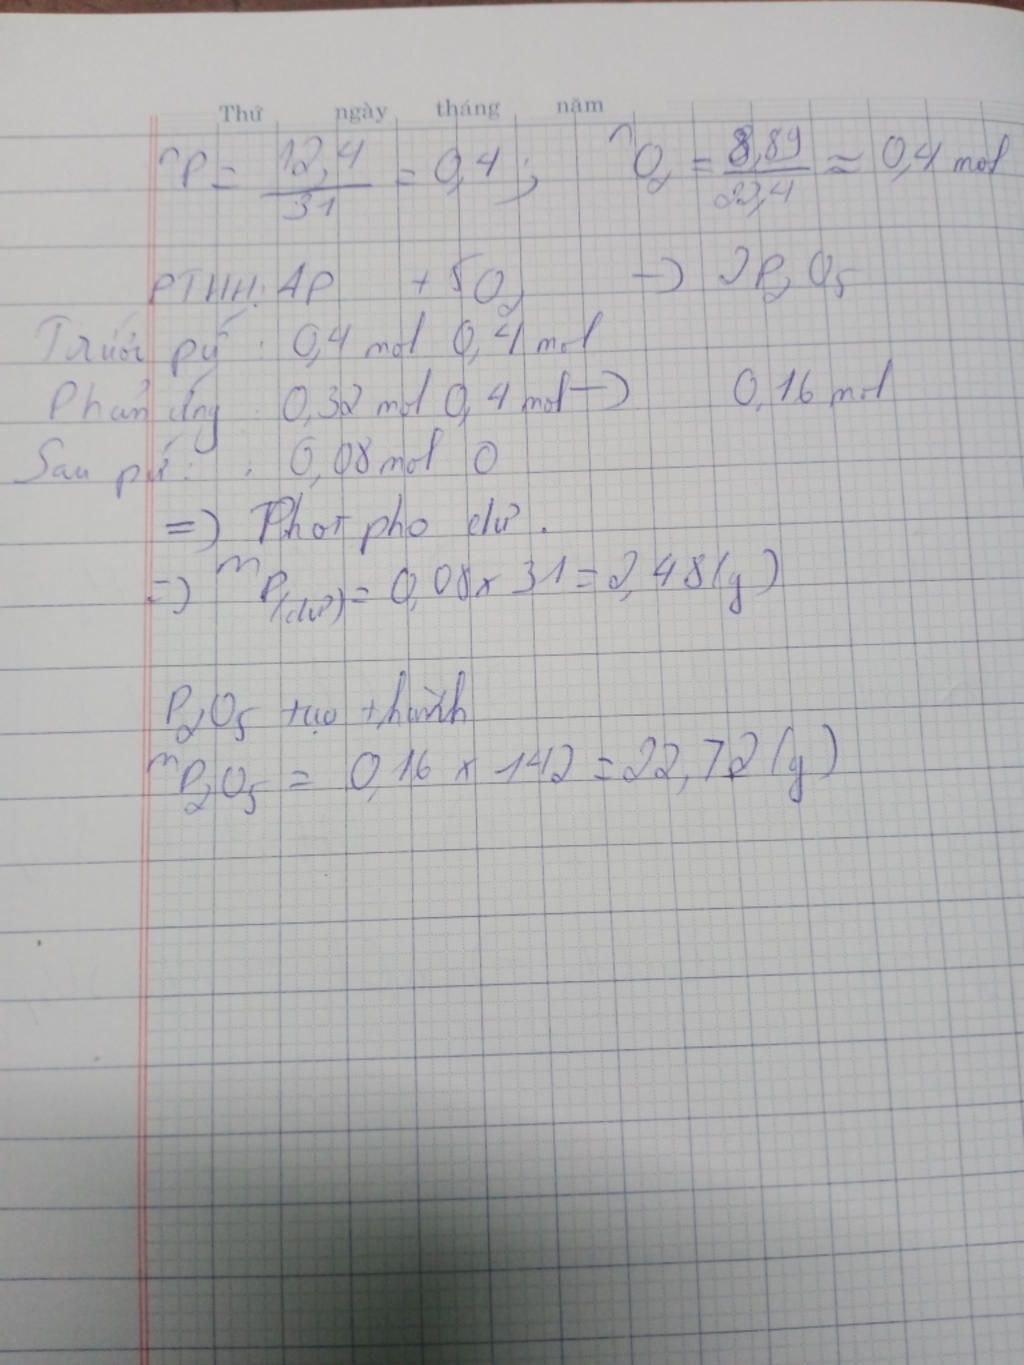 Thứ ngày tháng năm
nP = 12,4/31 = 0,4 ; nO2 = 8,89/22,4 ≈ 0,4 mol
PTHH: 4P + 5O2 → 2P2O5
Trước pứ : 0,4 mol 0,4 mol
Phản ứng : 0,32 mol 0,4 mol → 0,16 mol
Sau pứ : 0,08 mol 0
=> Phot pho dư .
=> mP(dư) = 0,08 x 31 = 2,48 (g)
P2O5 tạo thành
mP2O5 = 0,16 x 142 = 22,72 (g)